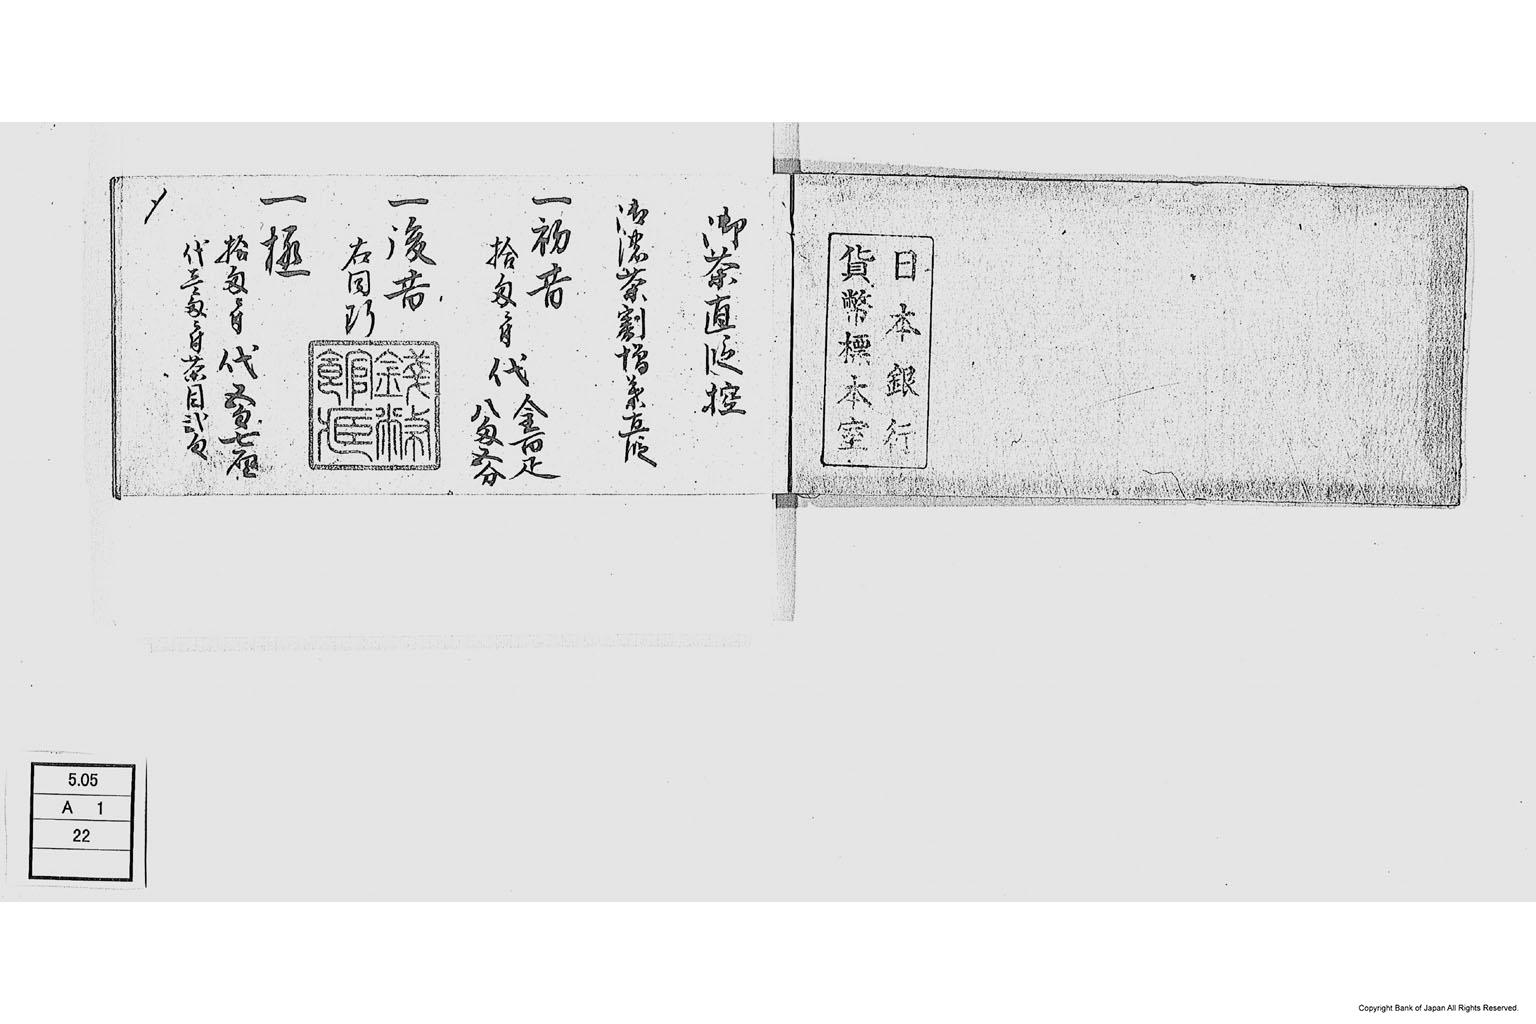 日本銀行
貨幣標本室
御茶直段控
御濃茶割増葉直段
一初昔
拾匁ニ付代
金百疋
八匁五分
一後昔
右同断
銭幣
館蔵
一極
拾匁ニ付代
代
茶目
5.05
A 1
22
Copyright Bank of Japan All Rights Reserved.